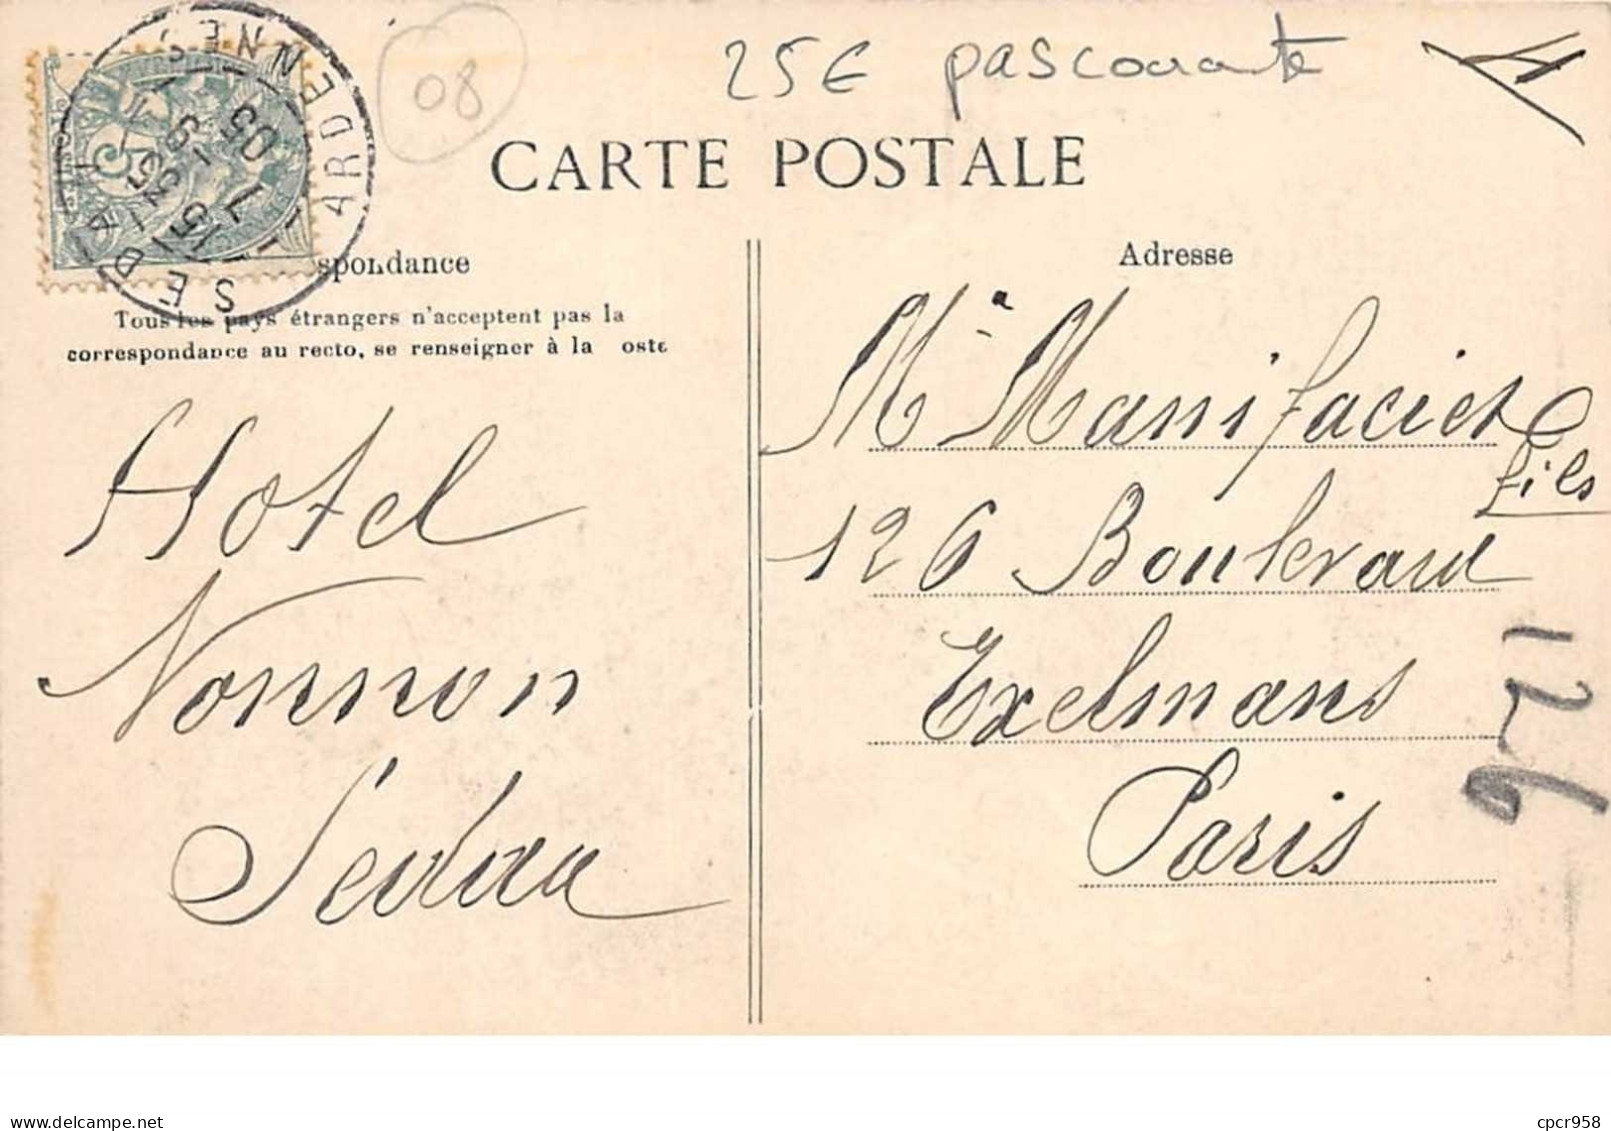 08
25€ pas courante
CARTE POSTALE
SEDAN
ARDENNES
05
spondance
Adresse
Tous les pays étrangers n'acceptent pas la
correspondance au recto, se renseigner à la oste
Hotel
Nonnon
Sedan
Mr Manifacier
fils
126 Boulevard
Exelmans
Paris
126
delcampe.net
cpcr958